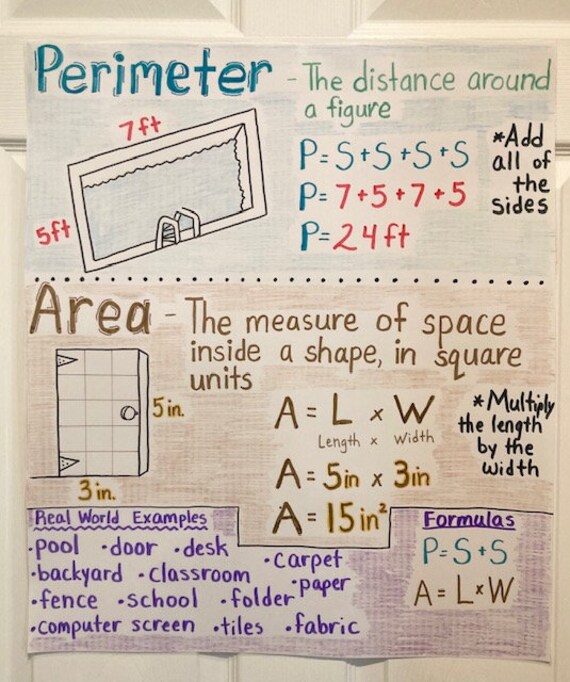 Perimeter - The distance around
a figure
7ft
5ft
P=S+S+S+S
P=7+5+7+5
P=24ft
*Add
all of
the
sides
Area - The measure of space
inside a shape, in square
units
5in.
3in.
A = L x W
Length x Width
A = 5in x 3in
A = 15in²
*Multiply
the length
by the
width
Real World Examples
•pool •door •desk
•carpet
•backyard •classroom
•paper
•fence •school •folder
•computer screen •tiles •fabric
Formulas
P=S+S
A=L×W